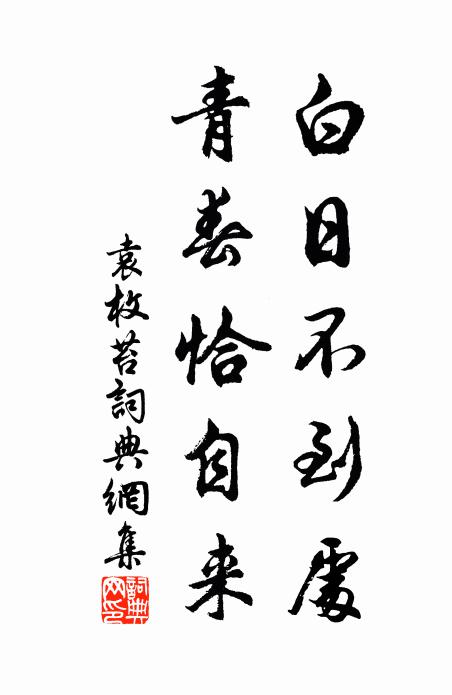 白日不到處
青春恰自来
袁枚苔詞典網集
詞典網印